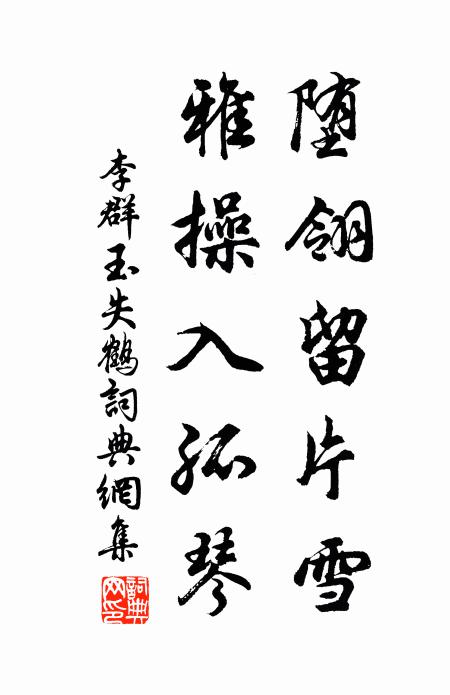 堕翎留片雪
雅操入孤琴
李群玉失鶴詞典網集
詞典網印